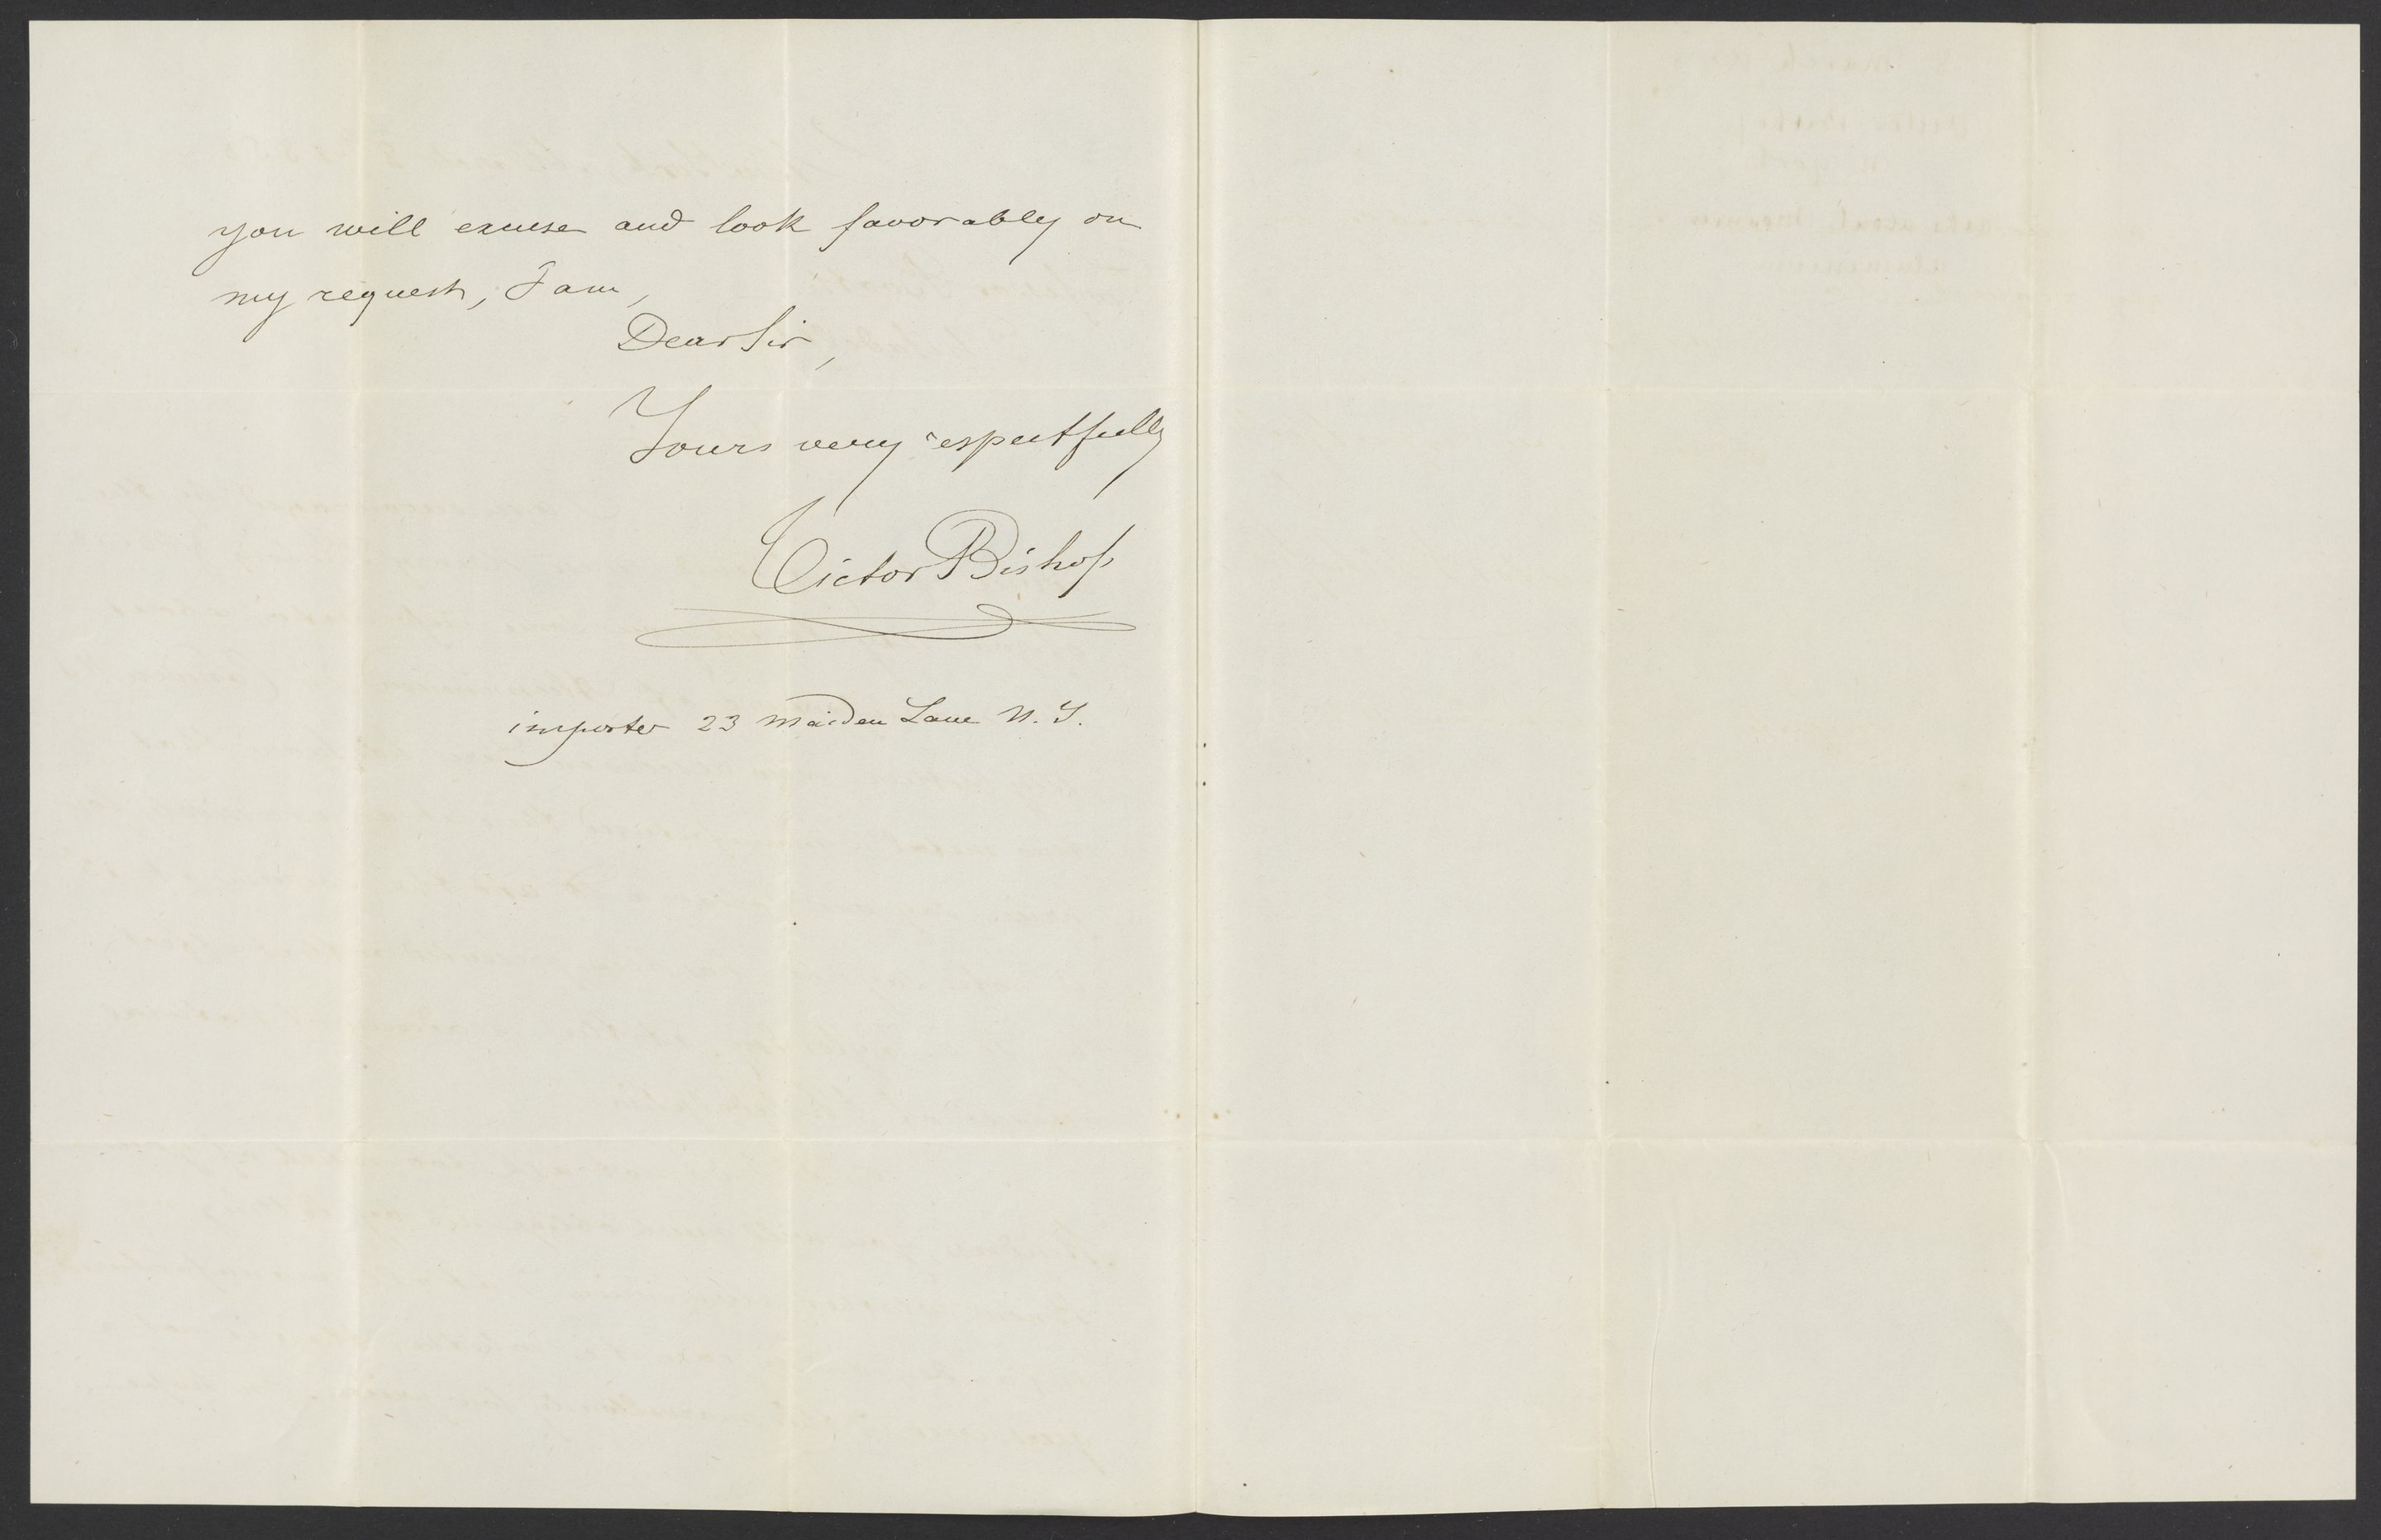 you will excuse and look favorably on
my request, I am,
Dear Sir,
Yours very respectfully
Victor Bishop
importer 23 Maiden Lane N. Y.